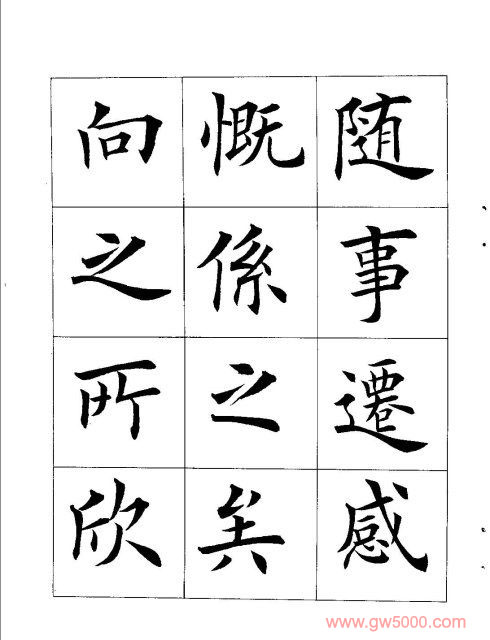 随事遷感
慨係之矣
向之所欣
www.gw5000.com